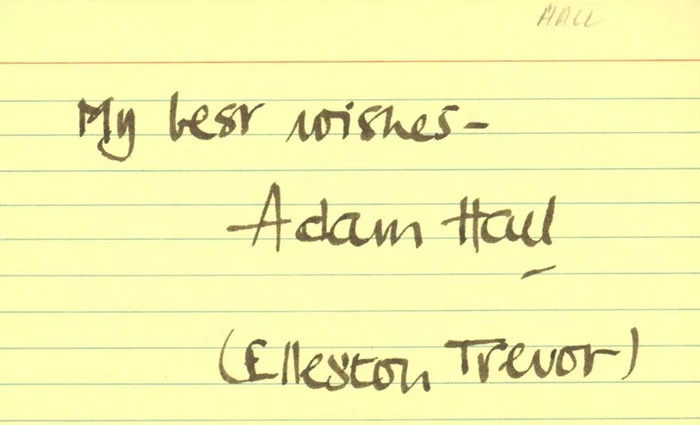 HALL
My best wishes-
Adam Hall
(Elleston Trevor)